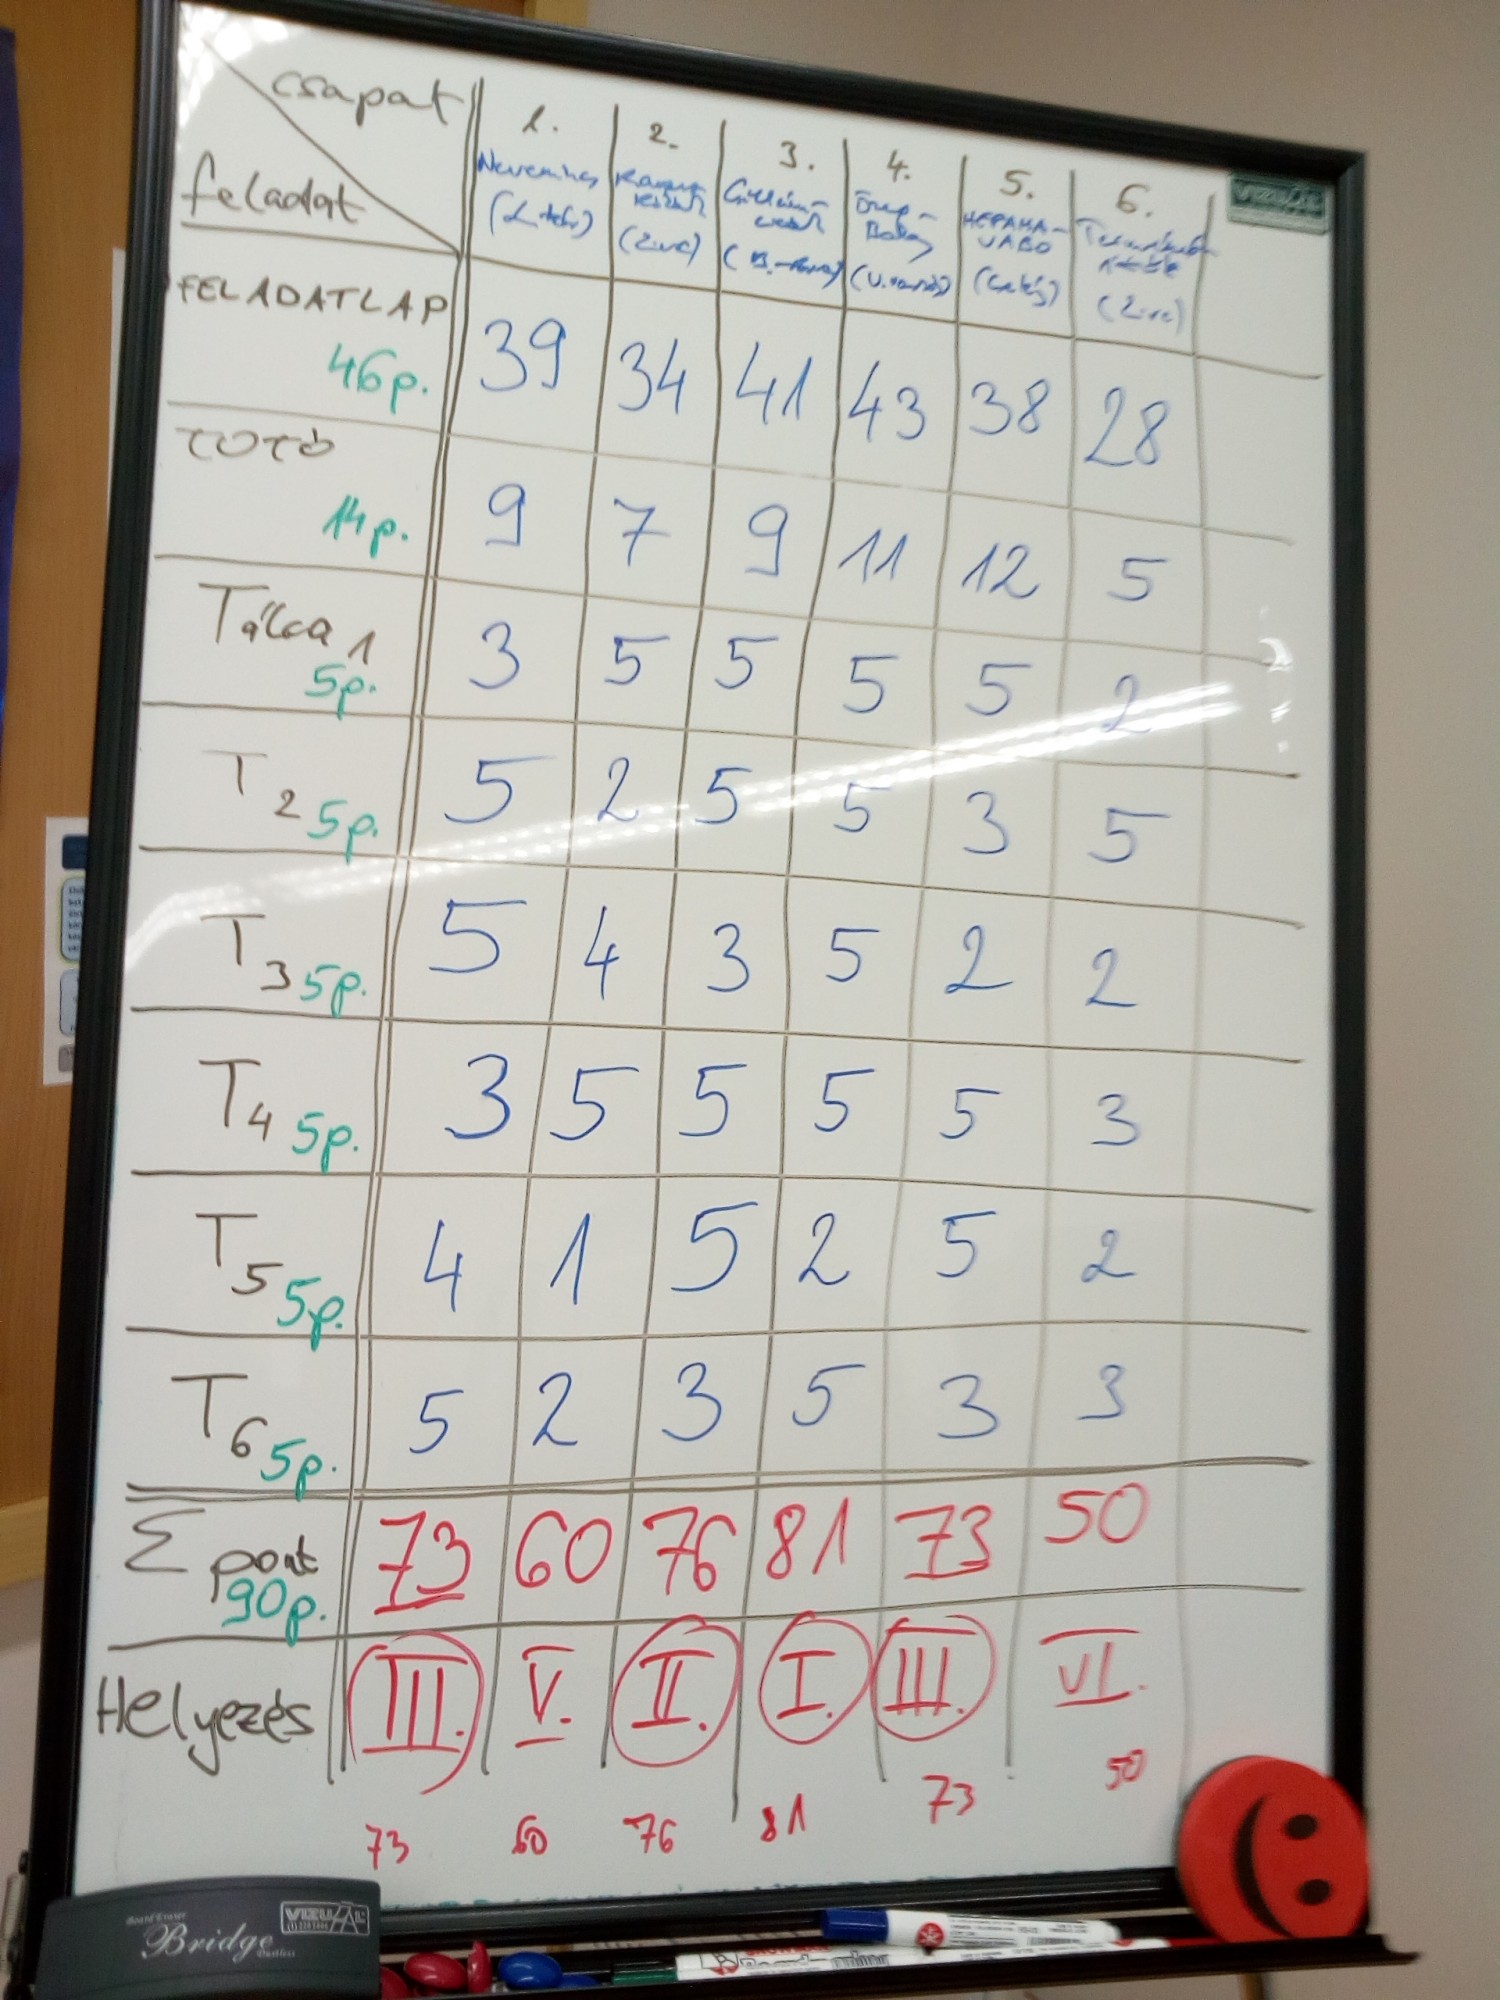 csapat
feladat
1. 2. 3. 4. 5. 6.
(Zirc) (Zirc)
HEPAHA-
VABO
FELADATLAP
46p. 39 34 41 43 38 28
TOTÓ
14p. 9 7 9 11 12 5
Tálca 1
5p. 3 5 5 5 5 2
T2 5p. 5 2 5 5 3 5
T3 5p. 5 4 3 5 2 2
T4 5p. 3 5 5 5 5 3
T5 5p. 4 1 5 2 5 2
T6 5p. 5 2 3 5 3 3
Σ pont 73 60 76 81 73 50
90p.
Helyezés III. V. II. I. III. VI.
73 60 76 81 73 50
VIZUÁL
Bridge
VIZUÁL